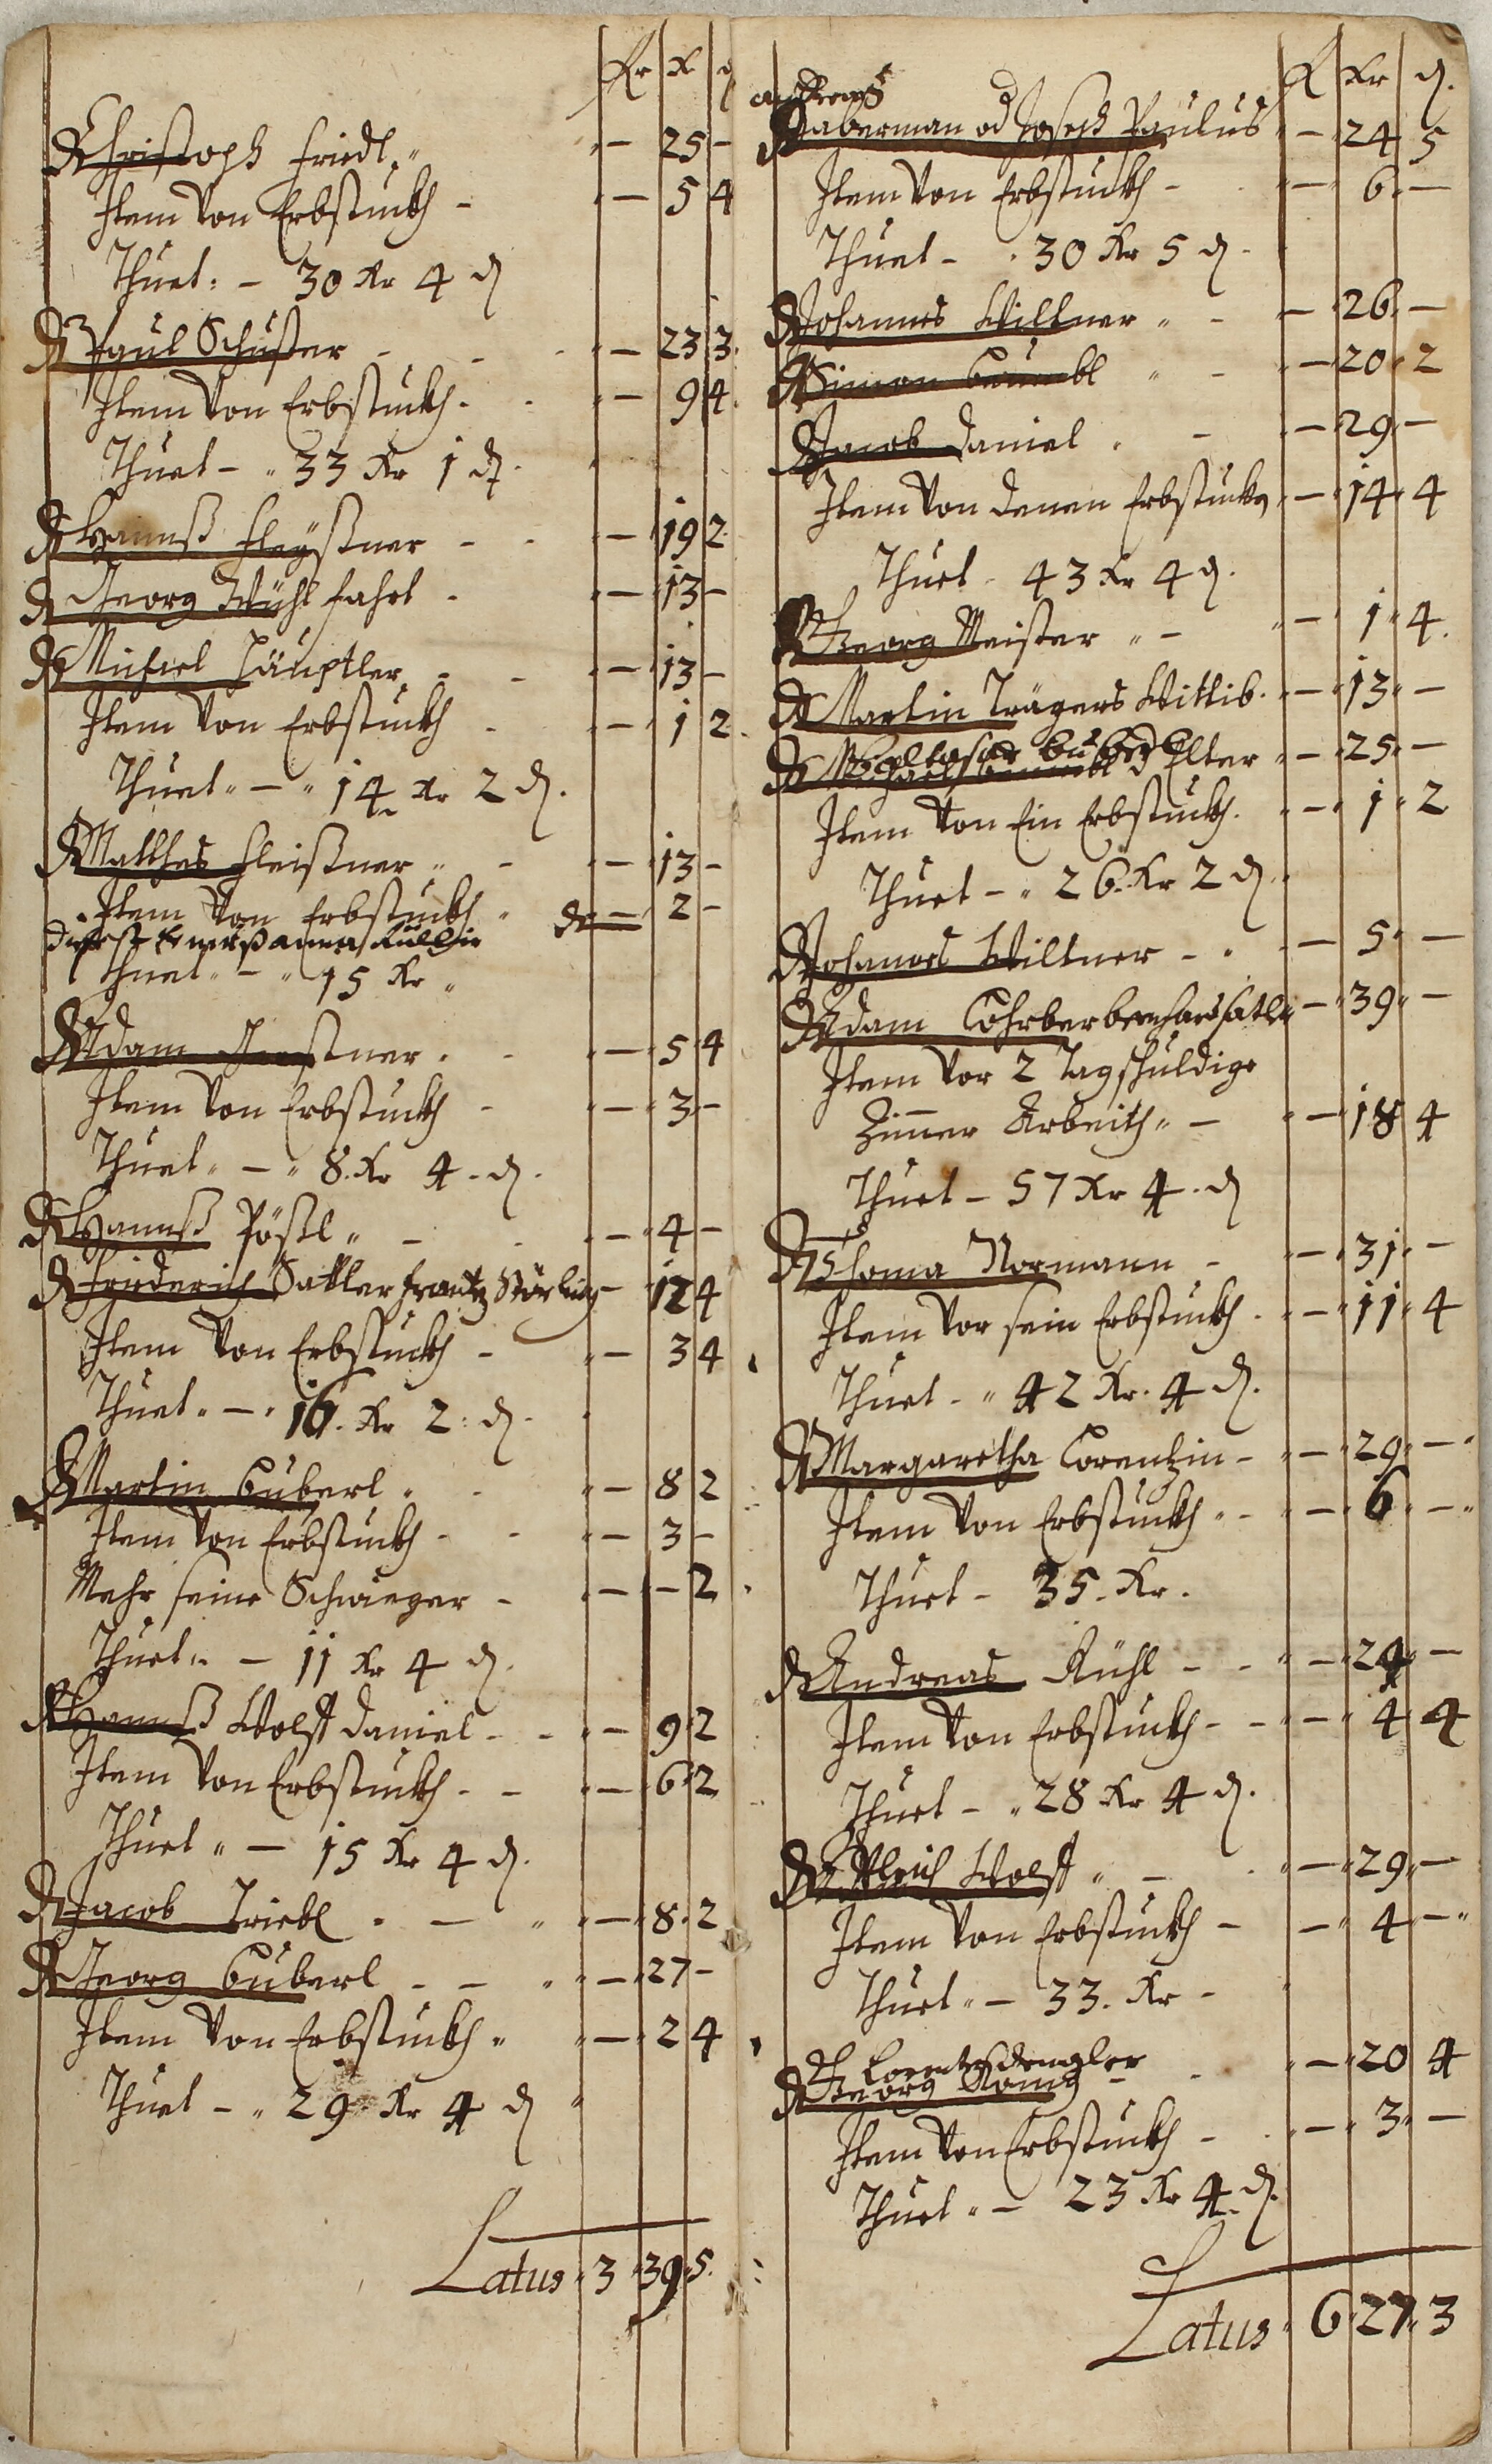 Kr d
Christoph Friedl - 25 -
Item Von Erbstückh - - 5 4
Thuet: - 30 Kr 4 d
Paul Schuster - - - 23 3
Item Von Erbstückh - - 9 4
Thuet - 33 Kr 1 d
Hannß Fleyßner - - 19 2
Georg Wühl - 13 -
Michael Häuptler - - 13 -
Item Von Erbstückh - 1 2
Thuet - 14 Kr 2 d.
Matthes Fleißner - - 13 -
Item Von Erbstückh - 2 -
Thuet - 15 Kr
Adam - 5 4
Item Von Erbstückh - - 3 -
Thuet - 8. Kr 4 d.
Hannß Pößl - - 4 -
Friederich Sattler Frantz - 12 4
Item Von Erbstückh - - 3 4
Thuet - 16. Kr 2: d.
Martin Büberl - 8 2
Item Von Erbstückh - - 3 -
Mehr seine Schwieger - - - 2
Thuet - 11 Kr 4 d.
Hannß Wolff Daniel - - 9 2
Item Von Erbstückh - - - 6 2
Thuet - 15 Kr 4 d.
Jacob Triebl - - 8 2
Georg Büberl - - - 27 -
Item Von Erbstückh - 2 4
Thuet - 29 Kr 4 d
Latus 3 39 5
Kr d.
Andreas
Haberman od Joseph Paulus - 24 5
Item Von Erbstückh - - 6 -
Thuet - 30 Kr 5 d.
Johannes Willner - - 26 -
Simon - - 20 2
Jacob Daniel - - 29 -
Item Von denen Erbstückh - 14 4
Thuet - 43 Kr 4 d.
Georg Meister - - 1 4
Martin Trägers Wittib - 13 -
Balthasar Büberl
Elter - 25 -
Item Von Ein Erbstückh - 1 2
Thuet - 26 Kr 2 d.
Johannes Willner - - 5 -
Adam - 39 -
Item Vor 2 Tag schuldige
Zimer Arbeith - - 18 4
Thuet - 57 Kr 4 d
Thoma Normann - - 31 -
Item Vor sein Erbstückh - 11 4
Thuet - 42 Kr. 4 d.
Margaretha Lorentzin - - 29 -
Item Von Erbstückh - - 6 -
Thuet - 35. Kr.
Andreas Kühl - - - 24 -
Item Von Erbstückh - - - 4 4
Thuet - 28 Kr 4 d.
Ulrich Wolff - - 29 -
Item Von Erbstückh - - 4 -
Thuet - 33. Kr -
Lorentz Dengler
Georg - - 20 4
Item Von Erbstückh - - 3 -
Thuet - 23 Kr 4 d.
Latus 6 27 3